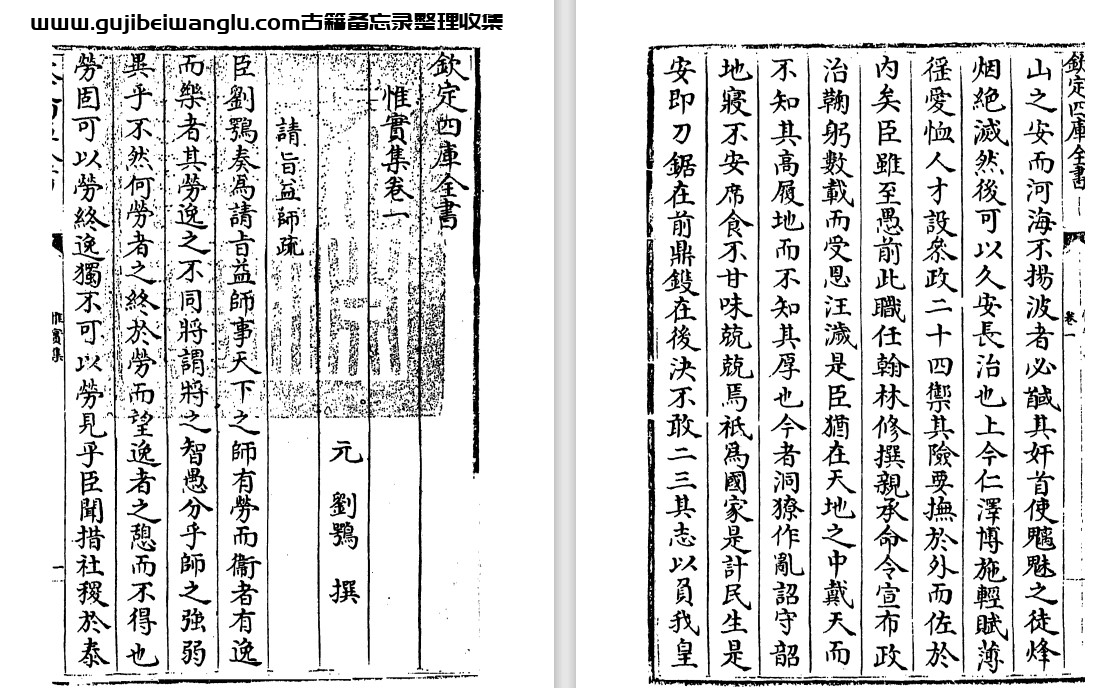 www.gujibeiwanglu.com古籍备忘录整理收集
欽定四庫全書
惟實集卷一
元 劉鶚 撰
請旨益師疏
臣劉鶚奏為請旨益師事天下之師有勞而衞者有逸
而樂者其勞逸之不同將謂將之智愚分乎師之強弱
異乎不然何勞者之終於勞而望逸者之憩而不得也
勞固可以勞終逸獨不可以勞見乎臣聞措社稷於泰
惟實集
一
欽定四庫全書
卷一
山之安而河海不揚波者必馘其奸首使魍魅之徒烽
烟絶滅然後可以久安長治也上今仁澤博施輕賦薄
徭愛恤人才設叅政二十四禦其險要撫於外而佐於
内矣臣雖至愚前此職任翰林修撰親承命令宣布政
治鞠躬數載而受恩汪濊是臣猶在天地之中戴天而
不知其高履地而不知其厚也今者洞獠作亂詔守韶
地寢不安席食不甘味兢兢焉祇為國家是計民生是
安即刀鋸在前鼎鑊在後決不敢二三其志以負我皇